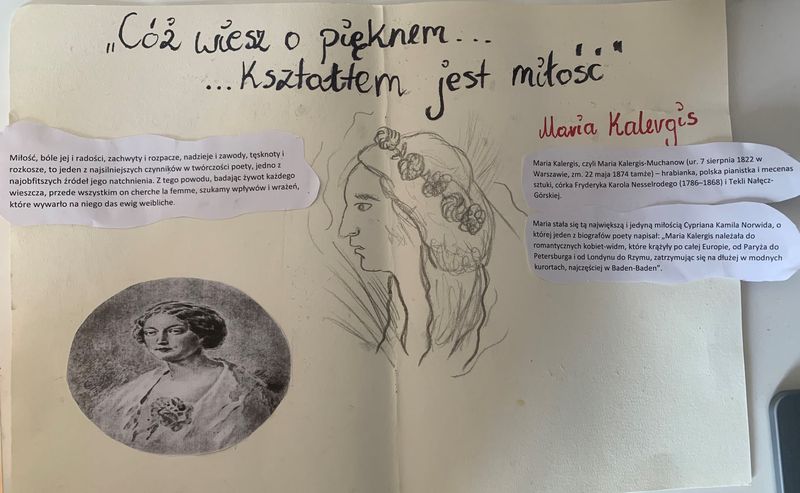 „Cóż wiesz o pięknem...
...Kształtem jest miłość"
Maria Kalergis
Miłość, bóle jej i radości, zachwyty i rozpacze, nadzieje i zawody, tęsknoty i
rozkosze, to jeden z najsilniejszych czynników w twórczości poety, jedno z
najobfitszych źródeł jego natchnienia. Z tego powodu, badając żywot każdego
wieszcza, przede wszystkim on cherche la femme, szukamy wpływów i wrażeń,
które wywarło na niego das ewig weibliche.
Maria Kalergis, czyli Maria Kalergis-Muchanow (ur. 7 sierpnia 1822 w
Warszawie, zm. 22 maja 1874 tamże) – hrabianka, polska pianistka i mecenas
sztuki, córka Fryderyka Karola Nesselrodego (1786–1868) i Tekli Nałęcz-
Górskiej.
Maria stała się tą największą i jedyną miłością Cypriana Kamila Norwida, o
której jeden z biografów poety napisał: „Maria Kalergis należała do
romantycznych kobiet-widm, które krążyły po całej Europie, od Paryża do
Petersburga i od Londynu do Rzymu, zatrzymując się na dłużej w modnych
kurortach, najczęściej w Baden-Baden”.